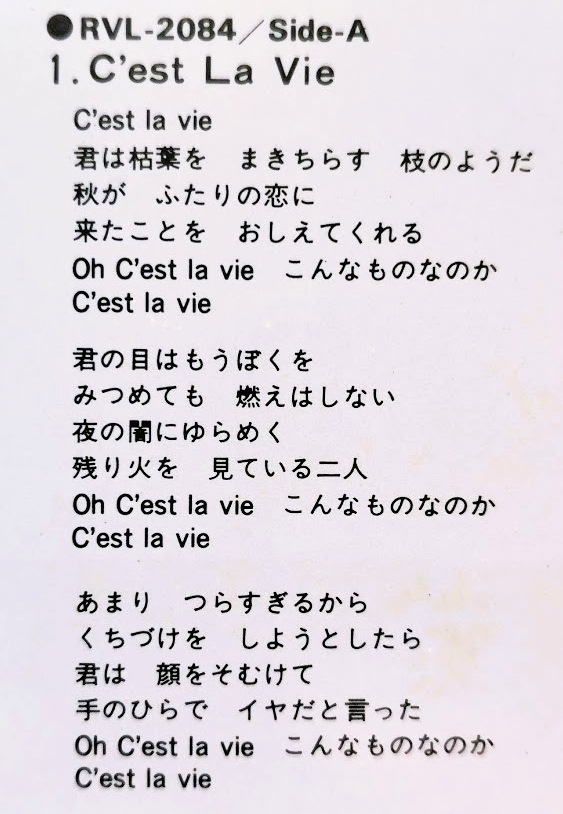 ●RVL-2084／Side-A
1. C'est La Vie
C'est la vie
君は枯葉を　まきちらす　枝のようだ
秋が　ふたりの恋に
来たことを　おしえてくれる
Oh C'est la vie　こんなものなのか
C'est la vie
君の目はもうぼくを
みつめても　燃えはしない
夜の闇にゆらめく
残り火を　見ている二人
Oh C'est la vie　こんなものなのか
C'est la vie
あまり　つらすぎるから
くちづけを　しようとしたら
君は　顔をそむけて
手のひらで　イヤだと言った
Oh C'est la vie　こんなものなのか
C'est la vie